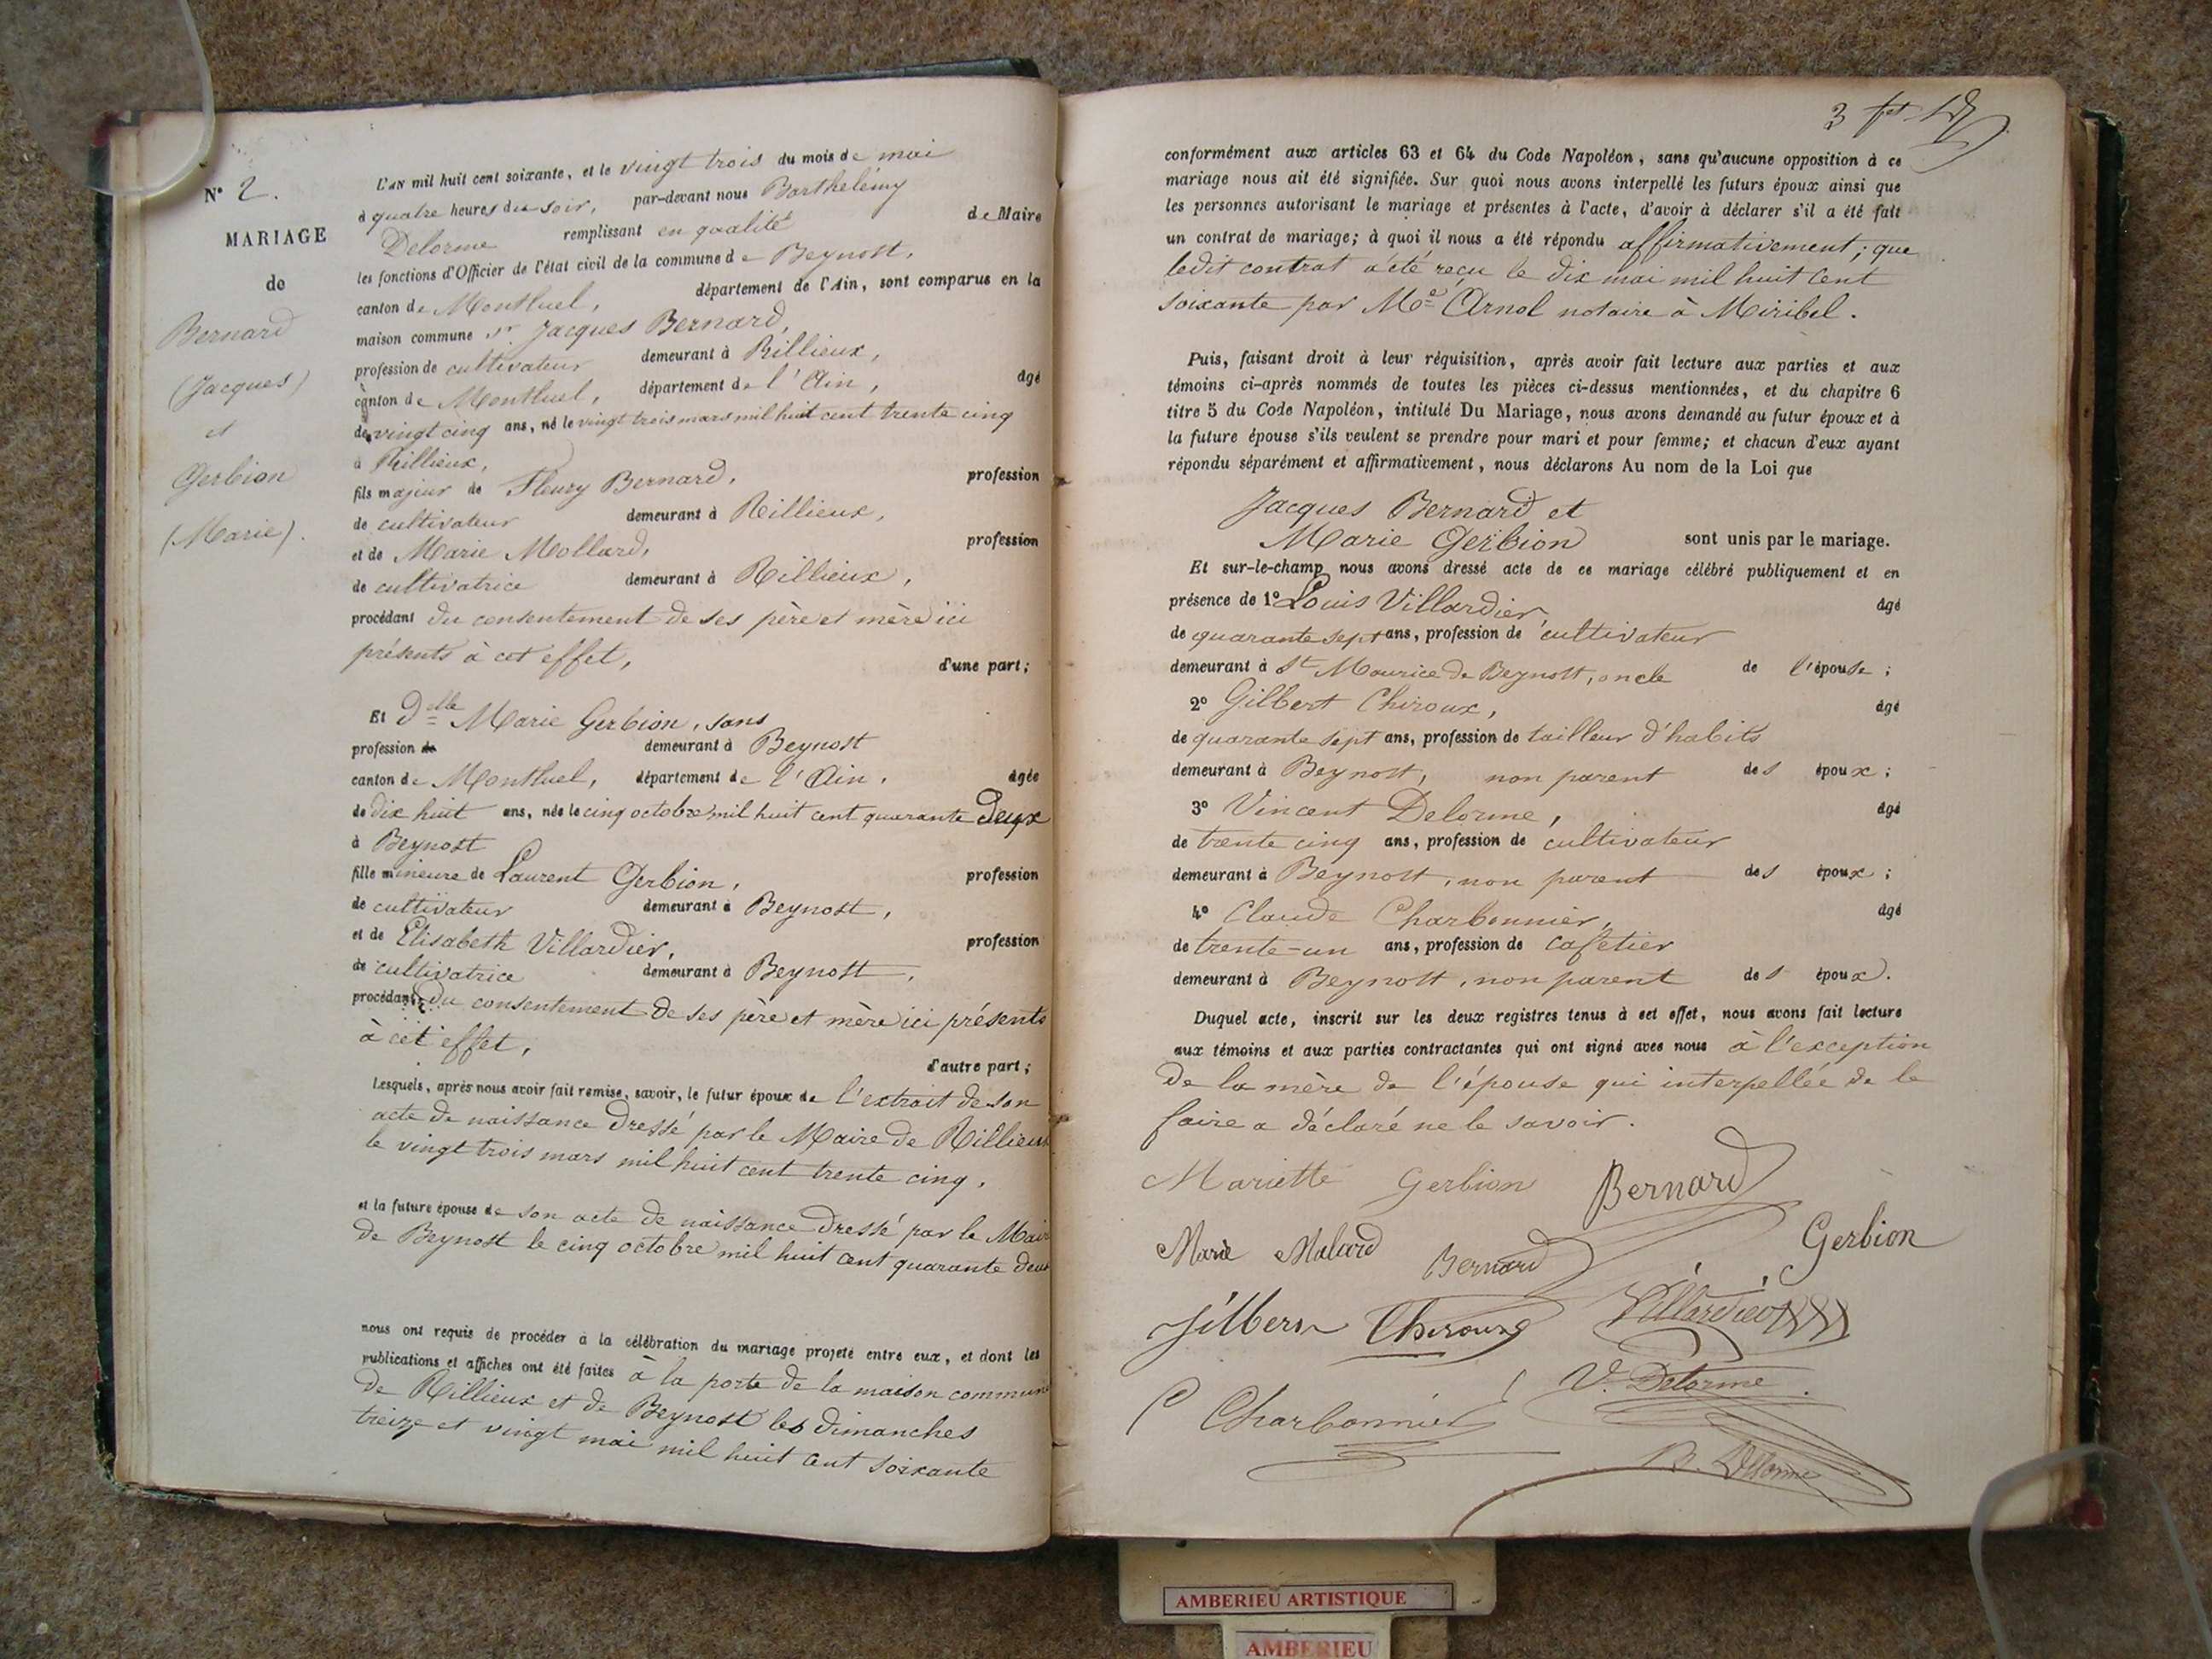 N° 2.
MARIAGE
de
Bernard
(Jacques)
et
Gerbion
(Marie).
L'AN mil huit cent soixante, et le vingt trois du mois de mai
à quatre heures du soir, par-devant nous Barthelémy
Delorme remplissant en qualité de Maire
les fonctions d'Officier de l'état civil de la commune de Beynost,
canton de Montluel, département de l'Ain, sont comparus en la
maison commune sr Jacques Bernard,
profession de cultivateur demeurant à Rillieux,
canton de Montluel, département de l'Ain, âgé
de vingt cinq ans, né le vingt trois mars mil huit cent trente cinq
à Rillieux,
fils majeur de Fleury Bernard, profession
de cultivateur demeurant à Rillieux,
et de Marie Mollard, profession
de cultivatrice demeurant à Rillieux,
procédant du consentement de ses père et mère ici
présents à cet effet, d'une part;
Et Delle Marie Gerbion, sans
profession de demeurant à Beynost
canton de Montluel, département de l'Ain, âgée
de dix huit ans, née le cinq octobre mil huit cent quarante deux
à Beynost
fille mineure de Laurent Gerbion, profession
de cultivateur demeurant à Beynost,
et de Elisabeth Villardier, profession
de cultivatrice demeurant à Beynost,
procédant du consentement de ses père et mère ici présents
à cet effet,
d'autre part;
Lesquels, après nous avoir fait remise, savoir, le futur époux de l'extrait de son
acte de naissance dressé par le Maire de Rillieux
le vingt trois mars mil huit cent trente cinq,
et la future épouse de son acte de naissance dressé par le Maire
de Beynost le cinq octobre mil huit cent quarante deux
nous ont requis de procéder à la célébration du mariage projeté entre eux, et dont les
publications et affiches ont été faites à la porte de la maison commune
de Rillieux et de Beynost les dimanches
treize et vingt mai mil huit cent soixante
3
conformément aux articles 63 et 64 du Code Napoléon, sans qu'aucune opposition à ce
mariage nous ait été signifiée. Sur quoi nous avons interpellé les futurs époux ainsi que
les personnes autorisant le mariage et présentes à l'acte, d'avoir à déclarer s'il a été fait
un contrat de mariage; à quoi il nous a été répondu affirmativement; que
ledit contrat a été reçu le dix mai mil huit cent
soixante par Me Arnol notaire à Miribel.
Puis, faisant droit à leur réquisition, après avoir fait lecture aux parties et aux
témoins ci-après nommés de toutes les pièces ci-dessus mentionnées, et du chapitre 6
titre 5 du Code Napoléon, intitulé Du Mariage, nous avons demandé au futur époux et à
la future épouse s'ils veulent se prendre pour mari et pour femme; et chacun d'eux ayant
répondu séparément et affirmativement, nous déclarons Au nom de la Loi que
Jacques Bernard et
Marie Gerbion sont unis par le mariage.
Et sur-le-champ nous avons dressé acte de ce mariage célébré publiquement et en
présence de 1° Louis Villardier, âgé
de quarante sept ans, profession de cultivateur
demeurant à St Maurice de Beynost, oncle de l'épouse;
2° Gilbert Chiroux, âgé
de quarante sept ans, profession de tailleur d'habits
demeurant à Beynost, non parent des époux;
3° Vincent Delorme, âgé
de trente cinq ans, profession de cultivateur
demeurant à Beynost, non parent des époux;
4° Claude Charbonnier, âgé
de trente-un ans, profession de cafetier
demeurant à Beynost, non parent des époux.
Duquel acte, inscrit sur les deux registres tenus à cet effet, nous avons fait lecture
aux témoins et aux parties contractantes qui ont signé avec nous à l'exception
de la mère de l'épouse qui interpellée de le
faire a déclaré ne le savoir.
Mariette Gerbion Bernard
Marie Malard Bernard Gerbion
Jilbert Chiroux Villardier
V. Delorme
C Charbonnier
B. Delorme
AMBERIEU ARTISTIQUE
AMBERIEU